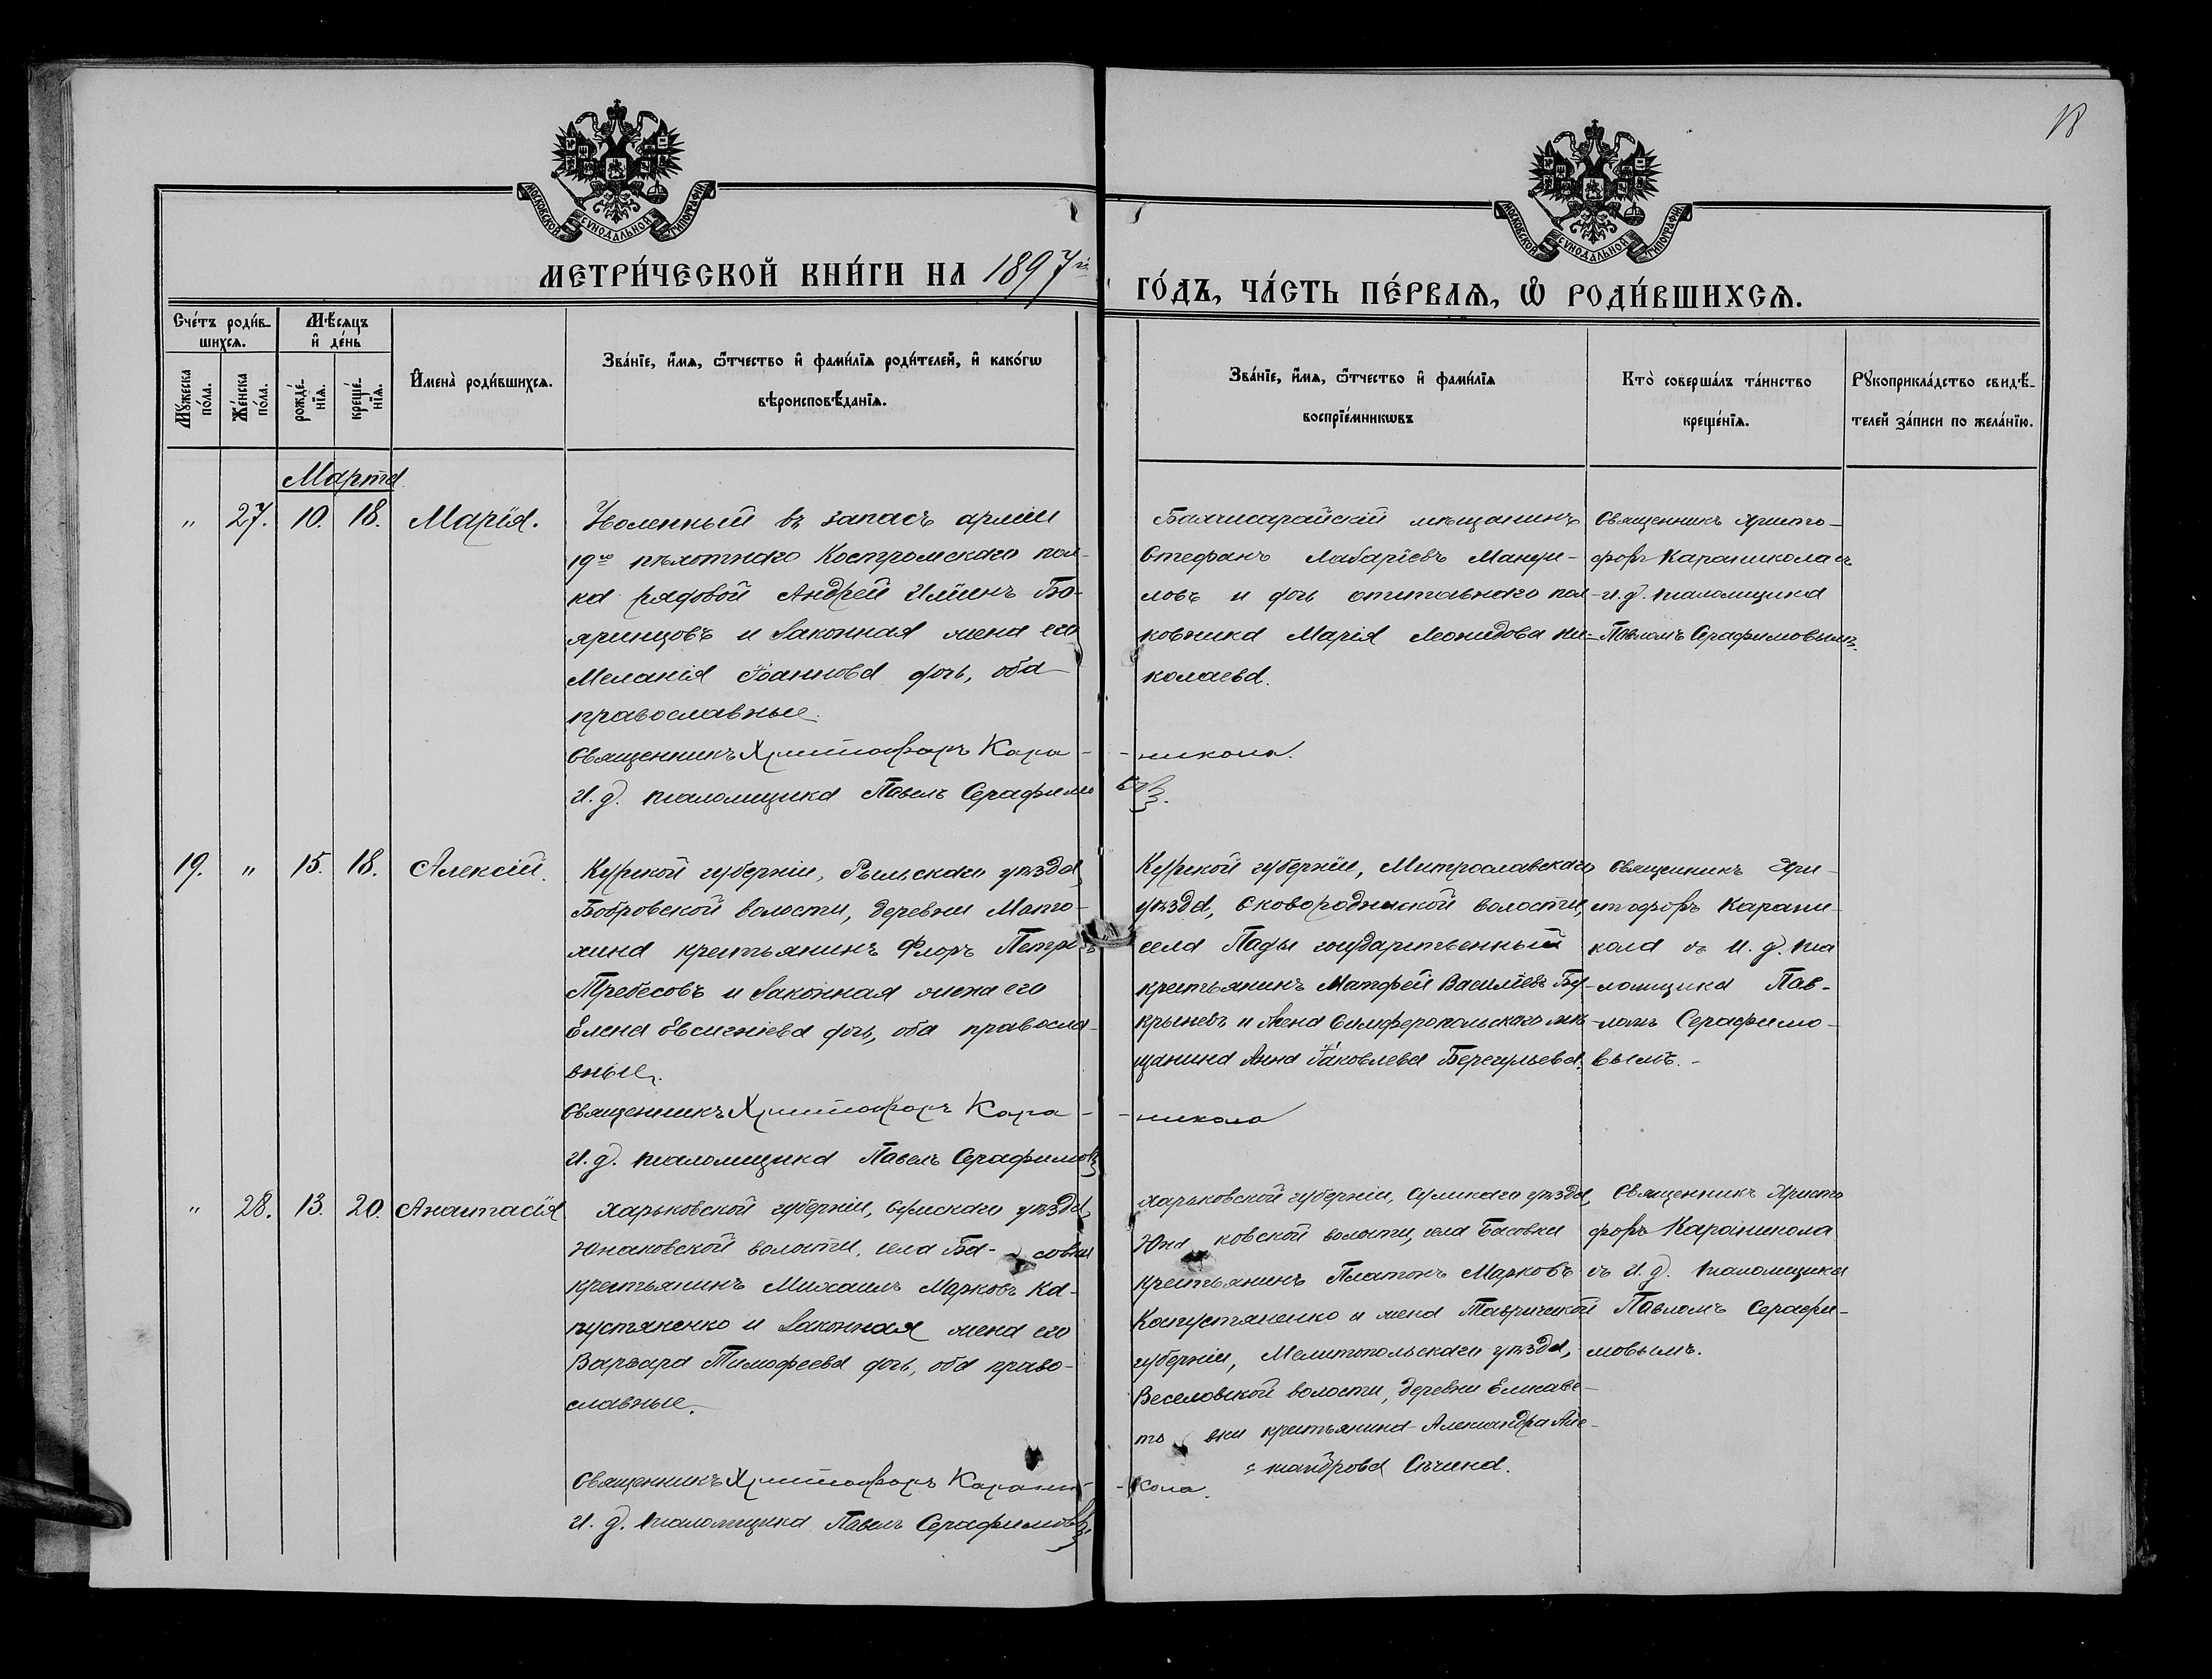 18
МОСКОВСКОЙ СѴНОДАЛЬНОЙ ТИПОГРАФІИ
МОСКОВСКОЙ СѴНОДАЛЬНОЙ ТИПОГРАФІИ
МЕТРИ́ЧЕСКОЙ КНИ́ГИ НА 1897й
ГО́ДЪ, ЧА́СТЬ ПЕ́РВАѦ, Ѽ РОДИ́ВШИХСѦ.
Сче́тъ роди́в-
шихсѧ.
Мꙋ́жеска
по́ла.
Же́нска
по́ла.
Мѣ́сѧцъ
и҆ де́нь
рожде́-
нїѧ.
креще́-
нїѧ.
И҆мена̀ роди́вшихсѧ.
Зва́нїе, и҆́мѧ, ѻ҆́тчество и҆ фами́лїѧ роди́телей, и҆ како́гѡ
вѣроисповѣ́данїѧ.
Зва́нїе, и҆́мѧ, ѻ҆́тчество и҆ фами́лїѧ
воспрїе́мникѡвъ
Кто̀ соверша́лъ та́инство
креще́нїѧ.
Рꙋкоприкла́дство свидѣ́-
телей за́писи по жела́нїю.
Марта
" 27. 10. 18. Марія.
Уволенный въ запасъ арміи
19го пѣхотнаго Костромскаго пол-
ка рядовой Андрей Ильинъ Бо-
яринцовъ и законная жена его
Меланія Іоаннова дочь, оба
православные.
Священникъ Христофоръ Кара-
И. д. псаломщика Павелъ Серафимо
Бахчисарайскій мѣщанинъ
Стефанъ
ловъ и дочь отставнаго пол-
ковника Марія Леонидова Ни-
колаева.
- никола.
въ.
Священникъ Христо-
форъ Караникола съ
и. д. псаломщика
Павломъ Серафимовымъ.
19. " 15. 18. Алексій.
Курской губерніи, Рыльскаго уѣзда,
Бобровской волости, деревни Мато-
хина крестьянинъ Флоръ Петровъ
Требесовъ и законная жена его
Елена Евсигніева дочь, оба правосла-
вные.
Священникъ Христофоръ Кара-
И. д. псаломщика Павелъ Серафимовъ
Курской губерніи,
уѣзда, Сковороднинской волости,
села Пады государственный
крестьянинъ Матфей Василіевъ Бу-
крыневъ и жена Симферопольскаго мѣ-
щанина Анна Іаковлева Берегульева.
- никола
Священникъ Хри-
стофоръ Карани-
кола съ И. д. пса
ломщика Пав-
ломъ Серафимо-
вымъ.-
" 28. 13. 20. Анастасія
Харьковской губерніи, Сумскаго уѣзда,
Юнаковской волости, села Ба- совки
крестьянинъ Михаилъ Марковъ Ка-
пустяненко и законная жена его
Варвара Тимофеева дочь, оба право-
славные.
Священникъ Христофоръ Карани-
И. д. псаломщика Павелъ Серафимовъ.
Харьковской губерніи, Сумскаго уѣзда,
Юна ковской волости, села Басовки
крестьянинъ Платонъ Марковъ
Капустяненко и жена Таврической
губерніи, Мелитопольскаго уѣзда,
Веселовской волости, деревни Елисаве-
то вки крестьянина Александра Але-
ксандрова Сѣчина.
-кола.
Священникъ Христо
форъ Караникола
съ И. д. псаломщика
Павломъ Серафи-
мовымъ.